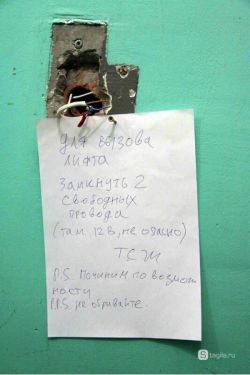 Для вызова
лифта
замкнуть 2
свободных
провода
(там 12В, не опасно)
ТСЖ
P.S. Починим по возмож
ности
P.P.S. не обрывайте.
stagila.ru